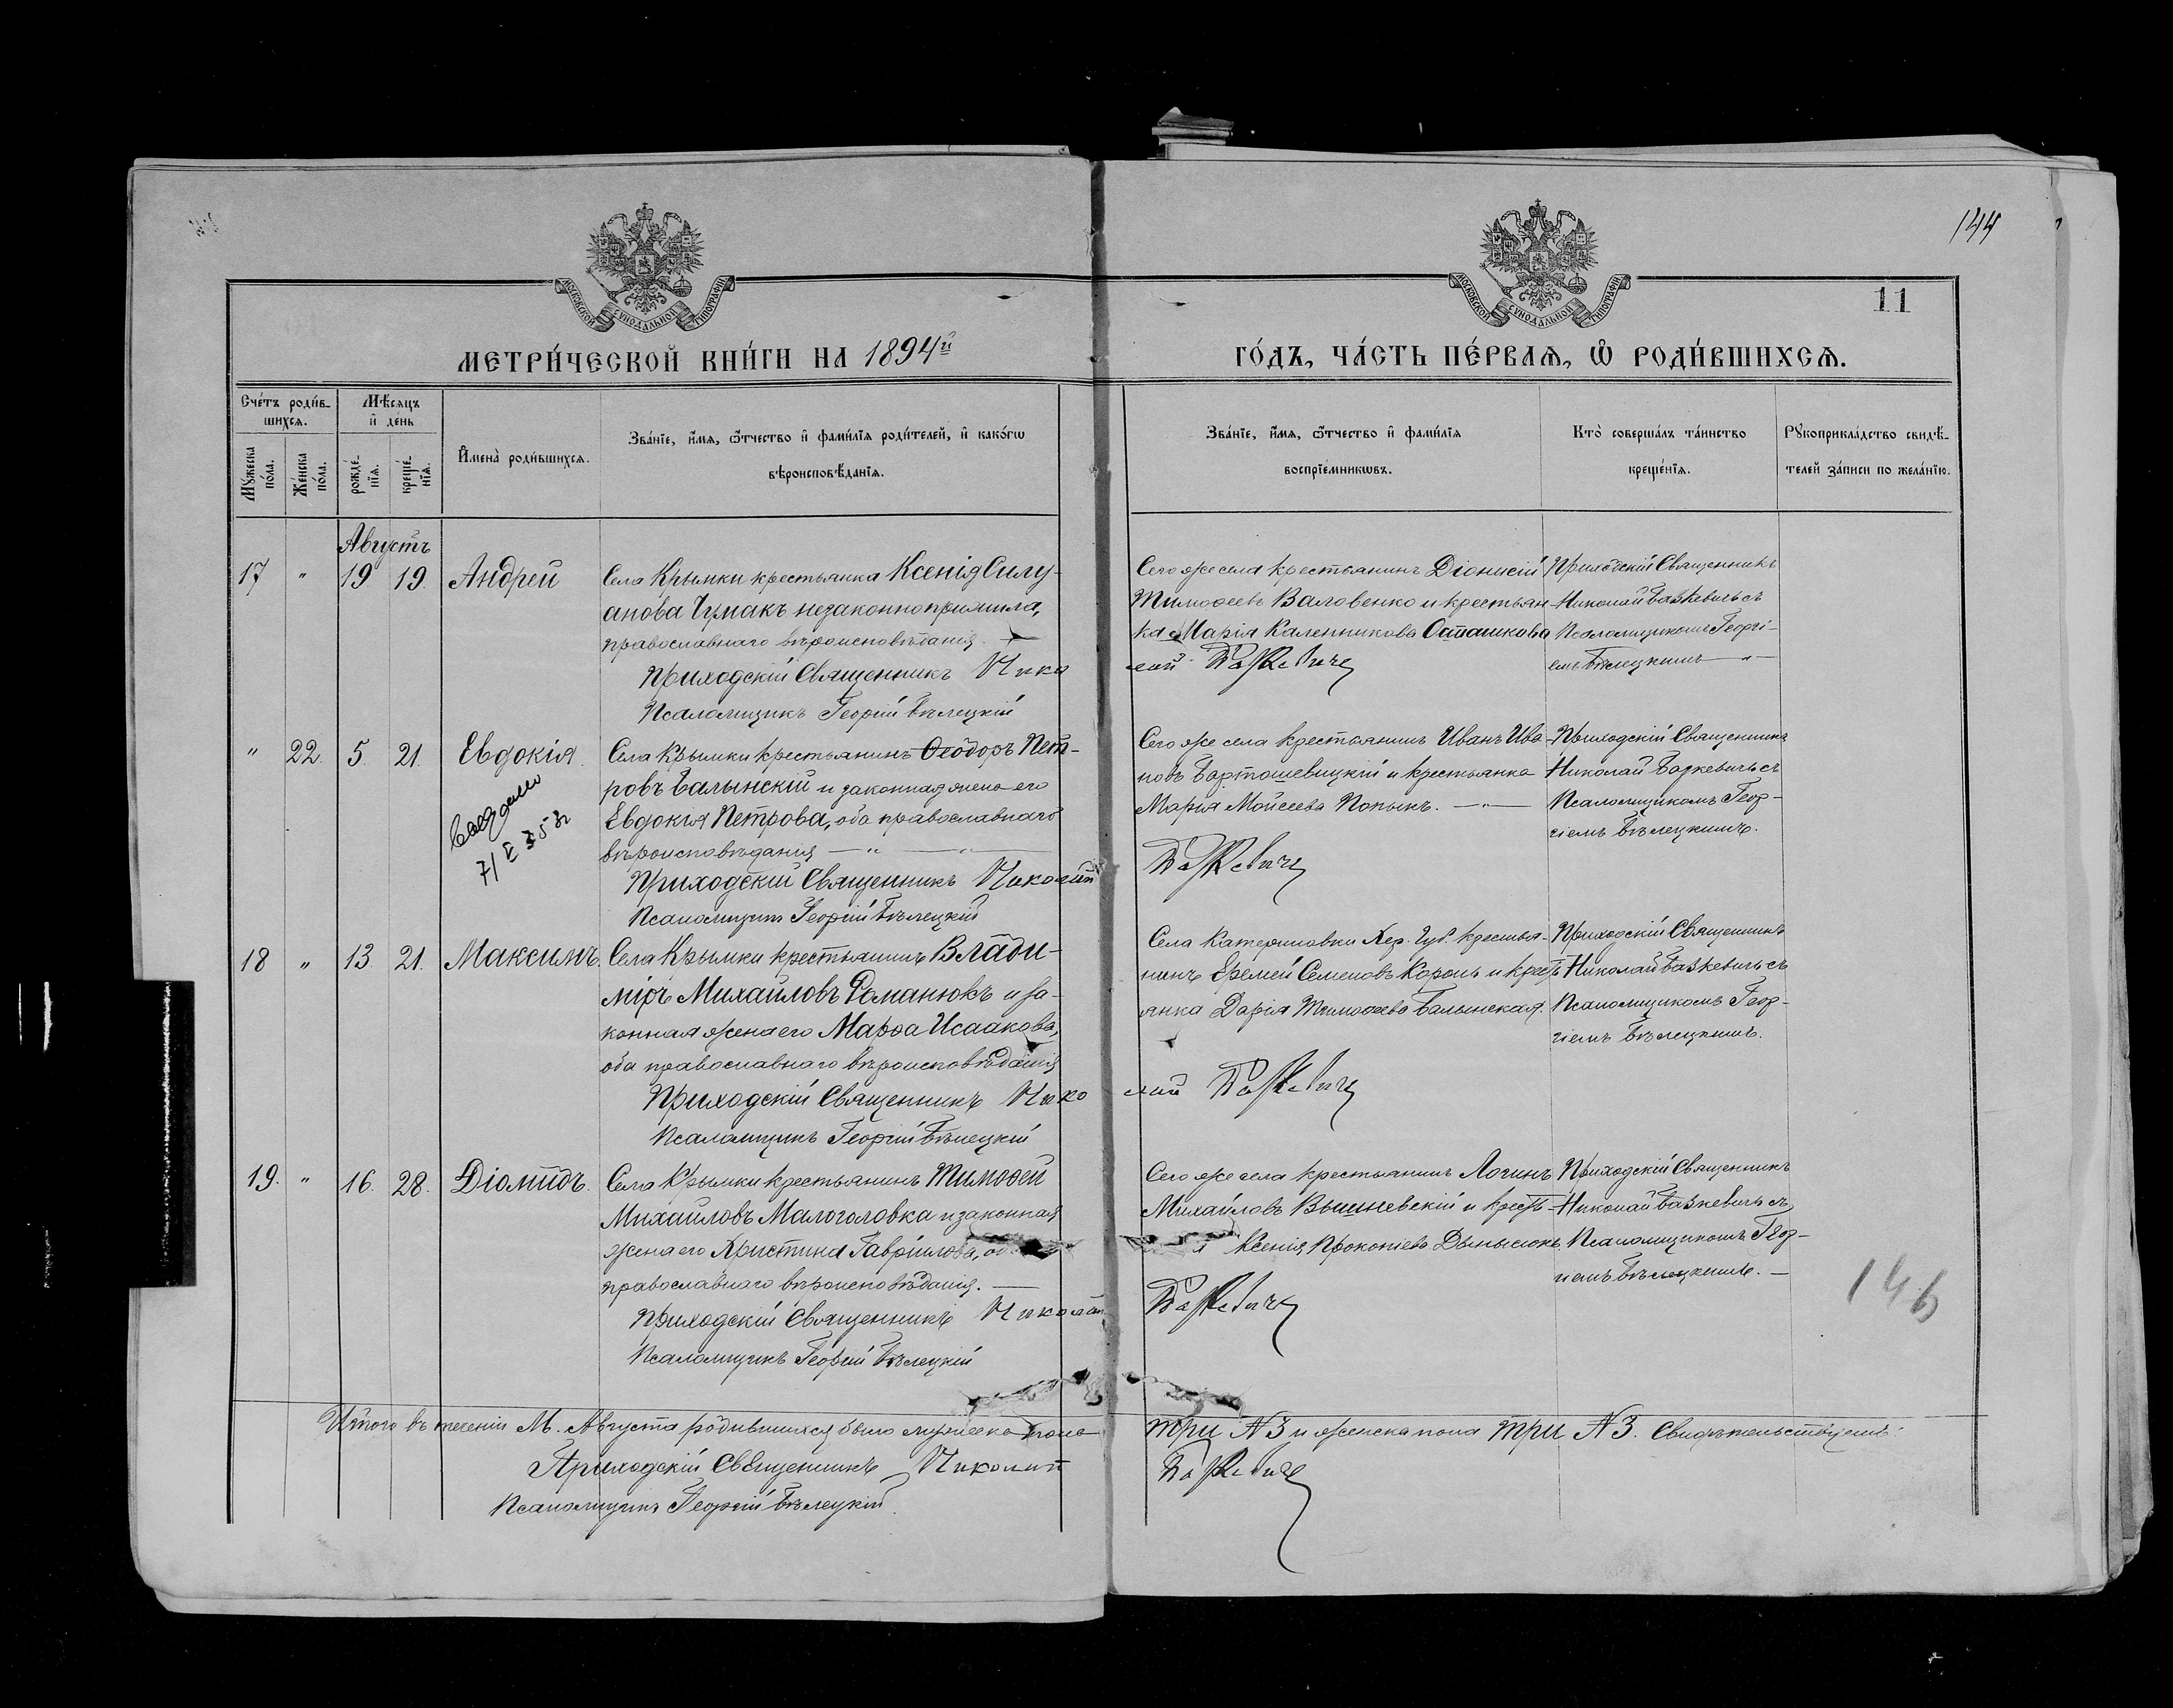 144
11
МОСКОВСКОЙ СѴНОДАЛЬНОЙ ТИПОГРАФІИ
МОСКОВСКОЙ СѴНОДАЛЬНОЙ ТИПОГРАФІИ
МЕТРИ́ЧЕСКОЙ КНИ́ГИ НА 1894й
ГО́ДЪ, ЧА́СТЬ ПЕ́РВАѦ, Ѽ РОДИ́ВШИХСѦ.
Сче́тъ роди́в-
шихсѧ.
Мѣ́сѧцъ
и҆ де́нь
Мꙋ́жеска по́ла.
Же́нска по́ла.
рожде́-
нїѧ.
креще́-
нїѧ.
И҆мена̀ роди́вшихсѧ.
Зва́нїе, и҆́мѧ, ѻ҆́тчество и҆ фами́лїѧ роди́телей, и҆ како́гѡ
вѣроисповѣ́данїѧ.
Зва́нїе, и҆́мѧ, ѻ҆́тчество и҆ фами́лїѧ
воспрїе́мникѡвъ.
Кто̀ соверша́лъ та́инство
креще́нїѧ.
Рꙋкоприкла́дство свидѣ́-
телей за́писи по жела́нїю.
Августъ
17 " 19 19. Андрей
Села Крымки крестьянка Ксенія Силу-
анова Чумакъ незаконноприжила,
православнаго вѣроисповѣданія.
Приходскій Священникъ Нико
Псаломщикъ Георгій Бѣлецкій
Сего же села крестьянинъ Діонисій
Тимоѳеевъ Валовенко и крестьян-
ка Марія Каленникова Осташкова
лай Базкевичъ
Приходскій Священникъ
Николай Базкевичъ съ
Псаломщикомъ Георгі-
емъ Бѣлецкимъ "
" 22. 5. 21. Евдокія.
7/V
Села Крымки крестьянинъ Ѳеодоръ Пет-
ровъ Балынскій и законная жена его
Евдокія Петрова, оба православнаго
вѣроисповѣданія — " — "
Приходскій Священникъ Николай
Псаломщикъ Георгій Бѣлецкій
Сего же села крестьянинъ Иванъ Ива-
новъ Бартошевицкій и крестьянка
Марія Мойсеева Попыкъ. — " —
Базкевичъ
Приходскій Священникъ
Николай Базкевичъ съ
Псаломщикомъ Геор-
гіемъ Бѣлецкимъ.
18 " 13. 21. Максимъ.
Села Крымки крестьянинъ Влади-
міръ Михайловъ Романюкъ и за-
конная жена его Марѳа Исаакова,
оба православнаго вѣроисповѣданія
Приходскій Священникъ Нико
Псаломщикъ Георгій Бѣлецкій
Села Катериновки Хер. Губ. крестья-
нинъ Еремей Семеновъ Король и крест-
янка Дарія Тимоѳеева Балынская.
лай Базкевичъ
Приходскій Священникъ
Николай Базкевичъ съ
Псаломщикомъ Геор-
гіемъ Бѣлецкимъ.
19. " 16. 28. Діомидъ.
Села Крымки крестьянинъ Тимоѳей
Михайловъ Малоголовка и законная
жена его Христина Гавріилова,
православнаго вѣроисповѣданія. —
Приходскій Священникъ Николай
Псаломщикъ Георгій Бѣлецкій
Сего же села крестьянинъ Логинъ
Михайловъ Вышневскій и крест-
Ксенія Прокопіева Дынысюкъ
Базкевичъ
Приходскій Священникъ
Николай Базкевичъ съ
Псаломщикомъ Геор-
гіемъ Бѣлецкимъ. —
146
Итого въ теченіи М. Августа родившихся было мужеска пола три N3 и женска пола три N3. Свидѣтельствуемъ:
Приходскій Священникъ Николай Базкевичъ
Псаломщикъ Георгій Бѣлецкій.